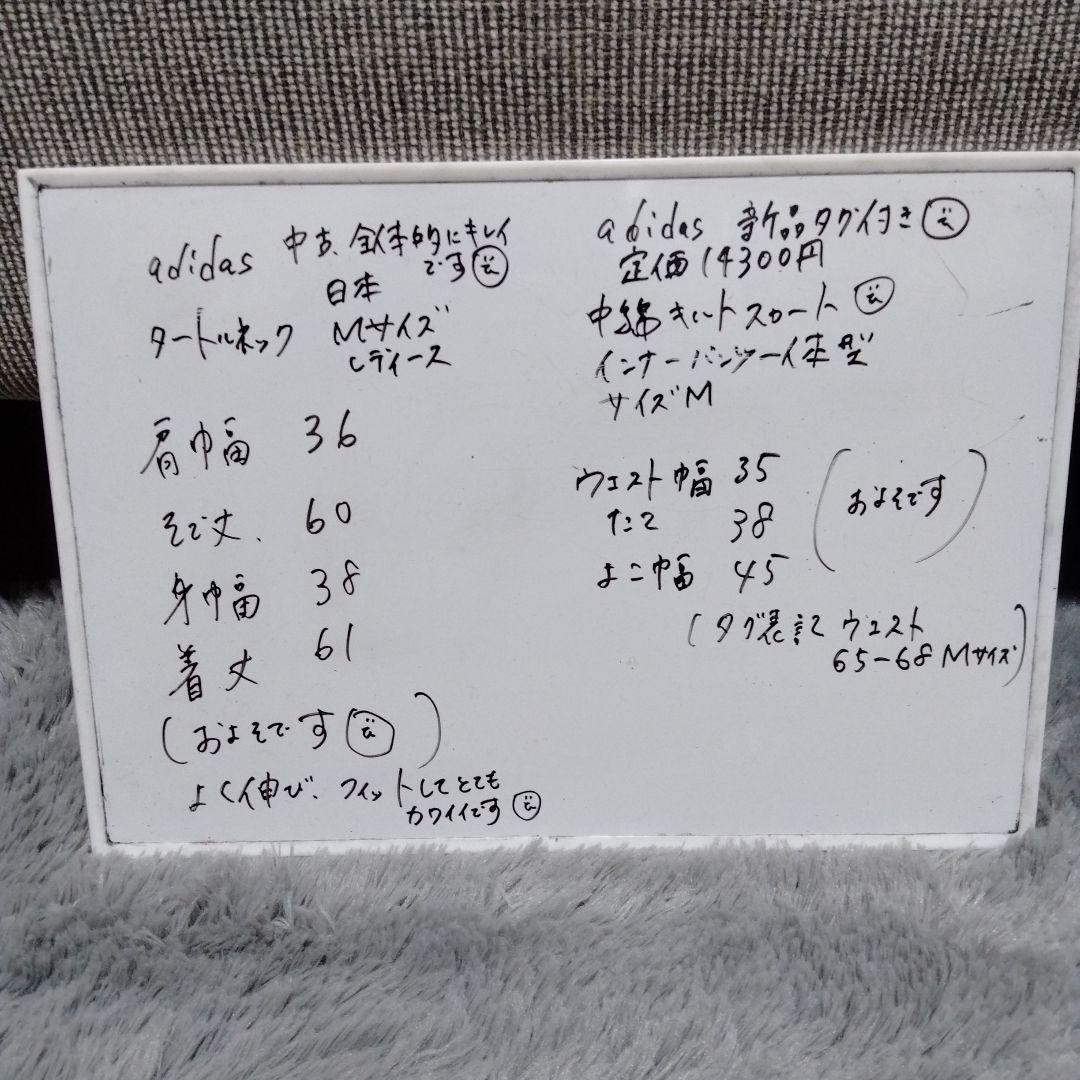 adidas 中古、全体的にキレイ
です
日本
タートルネック Mサイズ
レディース
肩巾幅 36
そで丈、 60
身巾幅 38
着丈 61
(およそです)
よく伸び、フィットしてとても
カワイイです
adidas 新品タグ付き
定価14300円
中綿キルトスカート
インナーパンツ一体型
サイズM
ウェスト幅 35
たて 38
よこ巾幅 45
(およそです)
(タグ表記 ウェスト
65-68 Mサイズ)